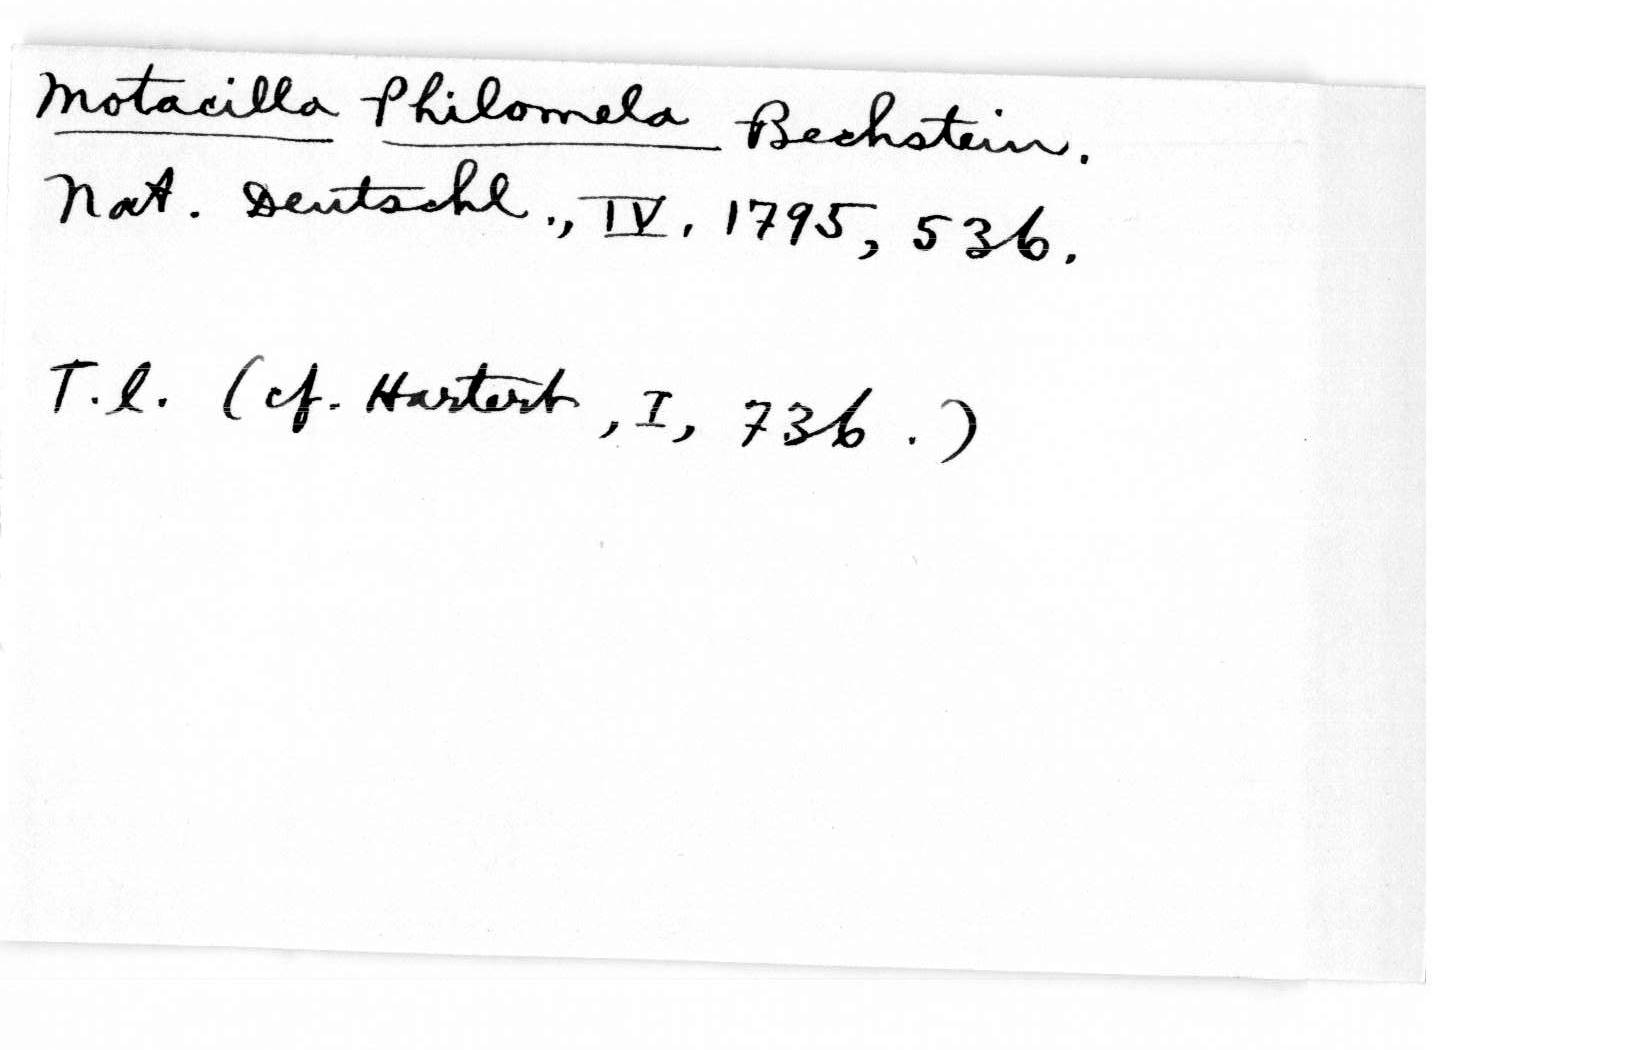 Motacilla Philomela Bechstein.
Nat. Deutschl., IV. 1795, 536.
T.l. (cf. Hartert, I, 736.)